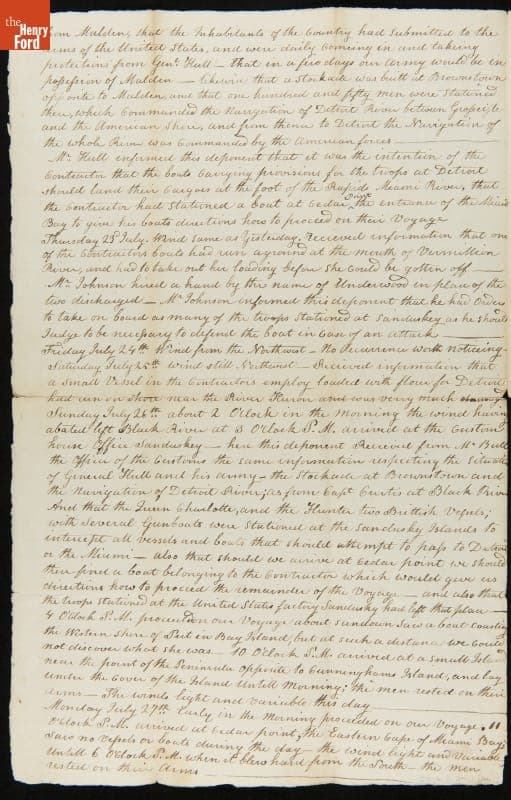 the
Henry
Ford
from Malden, that the Inhabitants of the Country had submitted to the
arms of the United States, and were daily comeing in and takeing
protections from Genl. Hull - that in a few days our Army would be in
possession of Malden - likewise that a Stockade was built at Brownstown
opposite to Malden, and that one hundred and fifty men were Stationed
there, which Commanded the Navigation of Detroit River between Grosisle
and the American Shore, and from thence to Detroit the Navigation of
the whole River was Commanded by the American forces
Mr. Hull informed this deponent that it was the intention of the
Contractor that the boats Carrying provisions for the troops at Detroit
should land their Cargoes at the foot of the Rapids Miami River, that
the Contractor had Stationed a boat at Cedar Point the entrance of the Miami
Bay to give his boats directions how to proceed on their Voyage
Thursday 23d July. Wind same as Yesterday. Recieved information that one
of the Contractors boats had run aground at the mouth of Vermillion
River, and had to take out her loading before she could be gotten off
Mr. Johnson hired a hand by the name of Underwood in place of the
two discharged - Mr. Johnson informed this deponent that he had Orders
to take on board as many of the troops Stationed at Sandusky as he should
Judge to be necessary to defend the boat in Case of an attack
Friday July 24th. Wind from the Northwest - No Occurrence worth noticeing
Saturday July 25th wind still Northwest - Recieved information that
a small Vessel in the Contractors employ loaded with flour for Detroit
had run on Shore near the River Huron and was very much
Sunday July 26th about 2 OClock in the Morning the wind haveing
abated left Black River at 3 OClock P.M. arrived at the Custom
house Office Sandusky - here this deponent Recieved from Mr. Bull
the Officer of the Customs the same information respecting the Situation
of General Hull and his army - the Stockade at Brownstown and
the Navigation of Detroit River; as from Capt Curtis at Black River
And that the Queen Charlotte, and the Hunter two British Vessels;
with Several Gunboats were Stationed at the Sandusky Islands to
intercept all vessels and boats that should attempt to pass to Detroit
or the Miami - also that should we arrive at Cedar point we should
there find a boat belonging to the Contractor which would give us
directions how to proceed the remainder of the Voyage - and also that
the troops stationed at the United States factory Sandusky had left that place -
4 OClock P.M. proceeded on our Voyage about sundown Saw a boat coasting
the Western Shore of Put in Bay Island, but at such a distance we could
not discover what she was - 10 OClock P.M. arrived at a small Island
near the point of the Peninsula opposite to Cunninghams Island, and lay
under the Cover of the Island Untill Morning; the men rested on their
arms - The winds light and variable this day
Monday July 27th Early in the Morning proceeded on our Voyage. 11
OClock P.M. arrived at Cedar point, the Eastern Cape of Miami Bay;
saw no vessels or boats during the day - the wind light and Variable
Untill 6 OClock P.M. when it blew hard from the South - the men
rested on their Arms